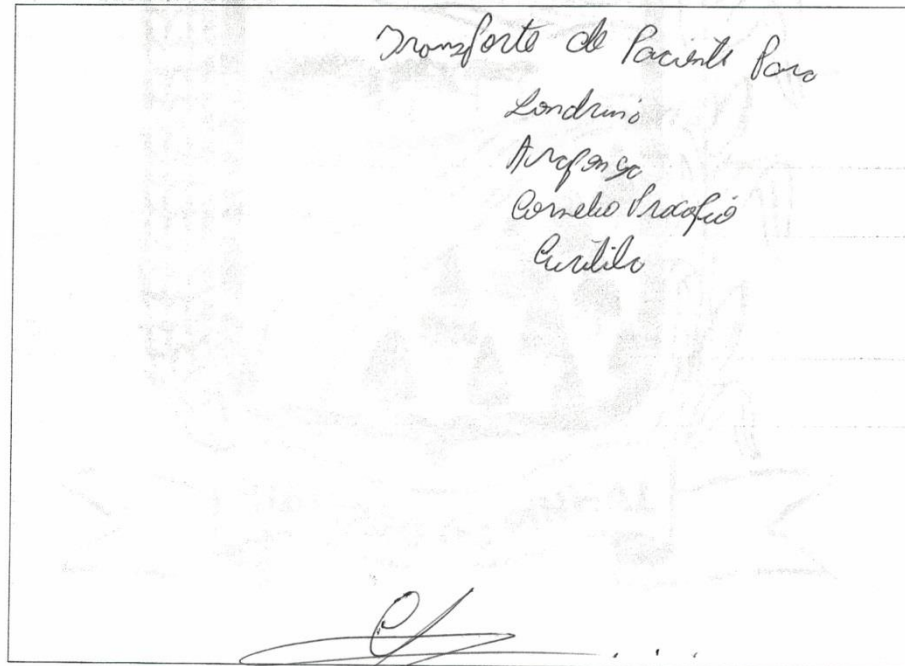 Transporte de Paciente Para
Londrina
Arapongas
Cornelio Procopio
Curitiba